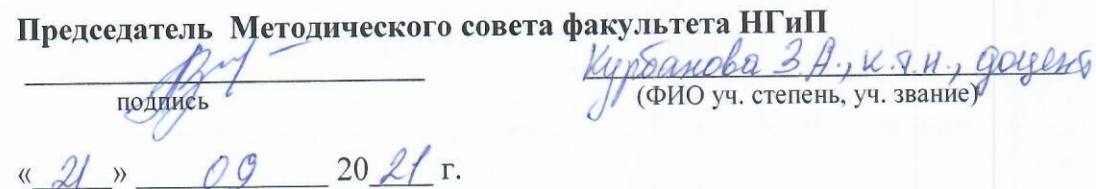 Председатель Методического совета факультета НГиП
Курбанова З.А., к.т.н., доцент
подпись (ФИО уч. степень, уч. звание)
« 21 » 09 20 21 г.